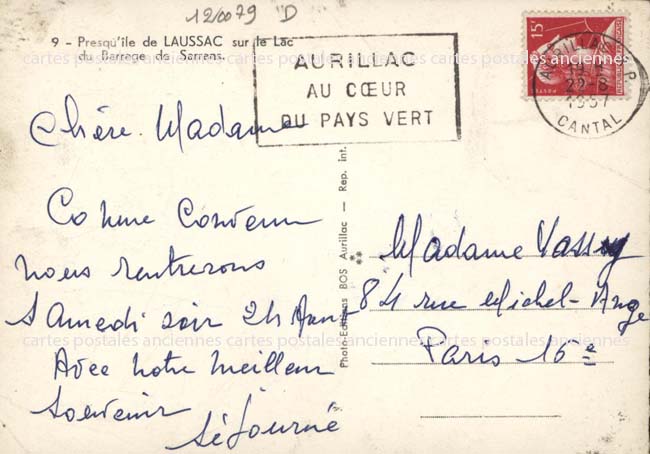 12/0079 D
9 - Presqu'île de LAUSSAC sur le Lac
du Barrage de Sarrans.
AURILLAC
AU CŒUR
DU PAYS VERT
15F
POSTES
AURILLAC R.P
22-8
1957
CANTAL
Chère Madame
Comme Convenu
nous rentrerons
Samedi soir 24 Août
Avec notre meilleur
souvenir
Séjourné
Photo-Editions BOS Aurillac — Rep. int.
Madame Vassy
84 rue Michel-Ange
Paris 16e
cartes postales anciennes cartes postales anciennes cartes postales anciennes
cartes postales anciennes cartes postales anciennes cartes postales anciennes